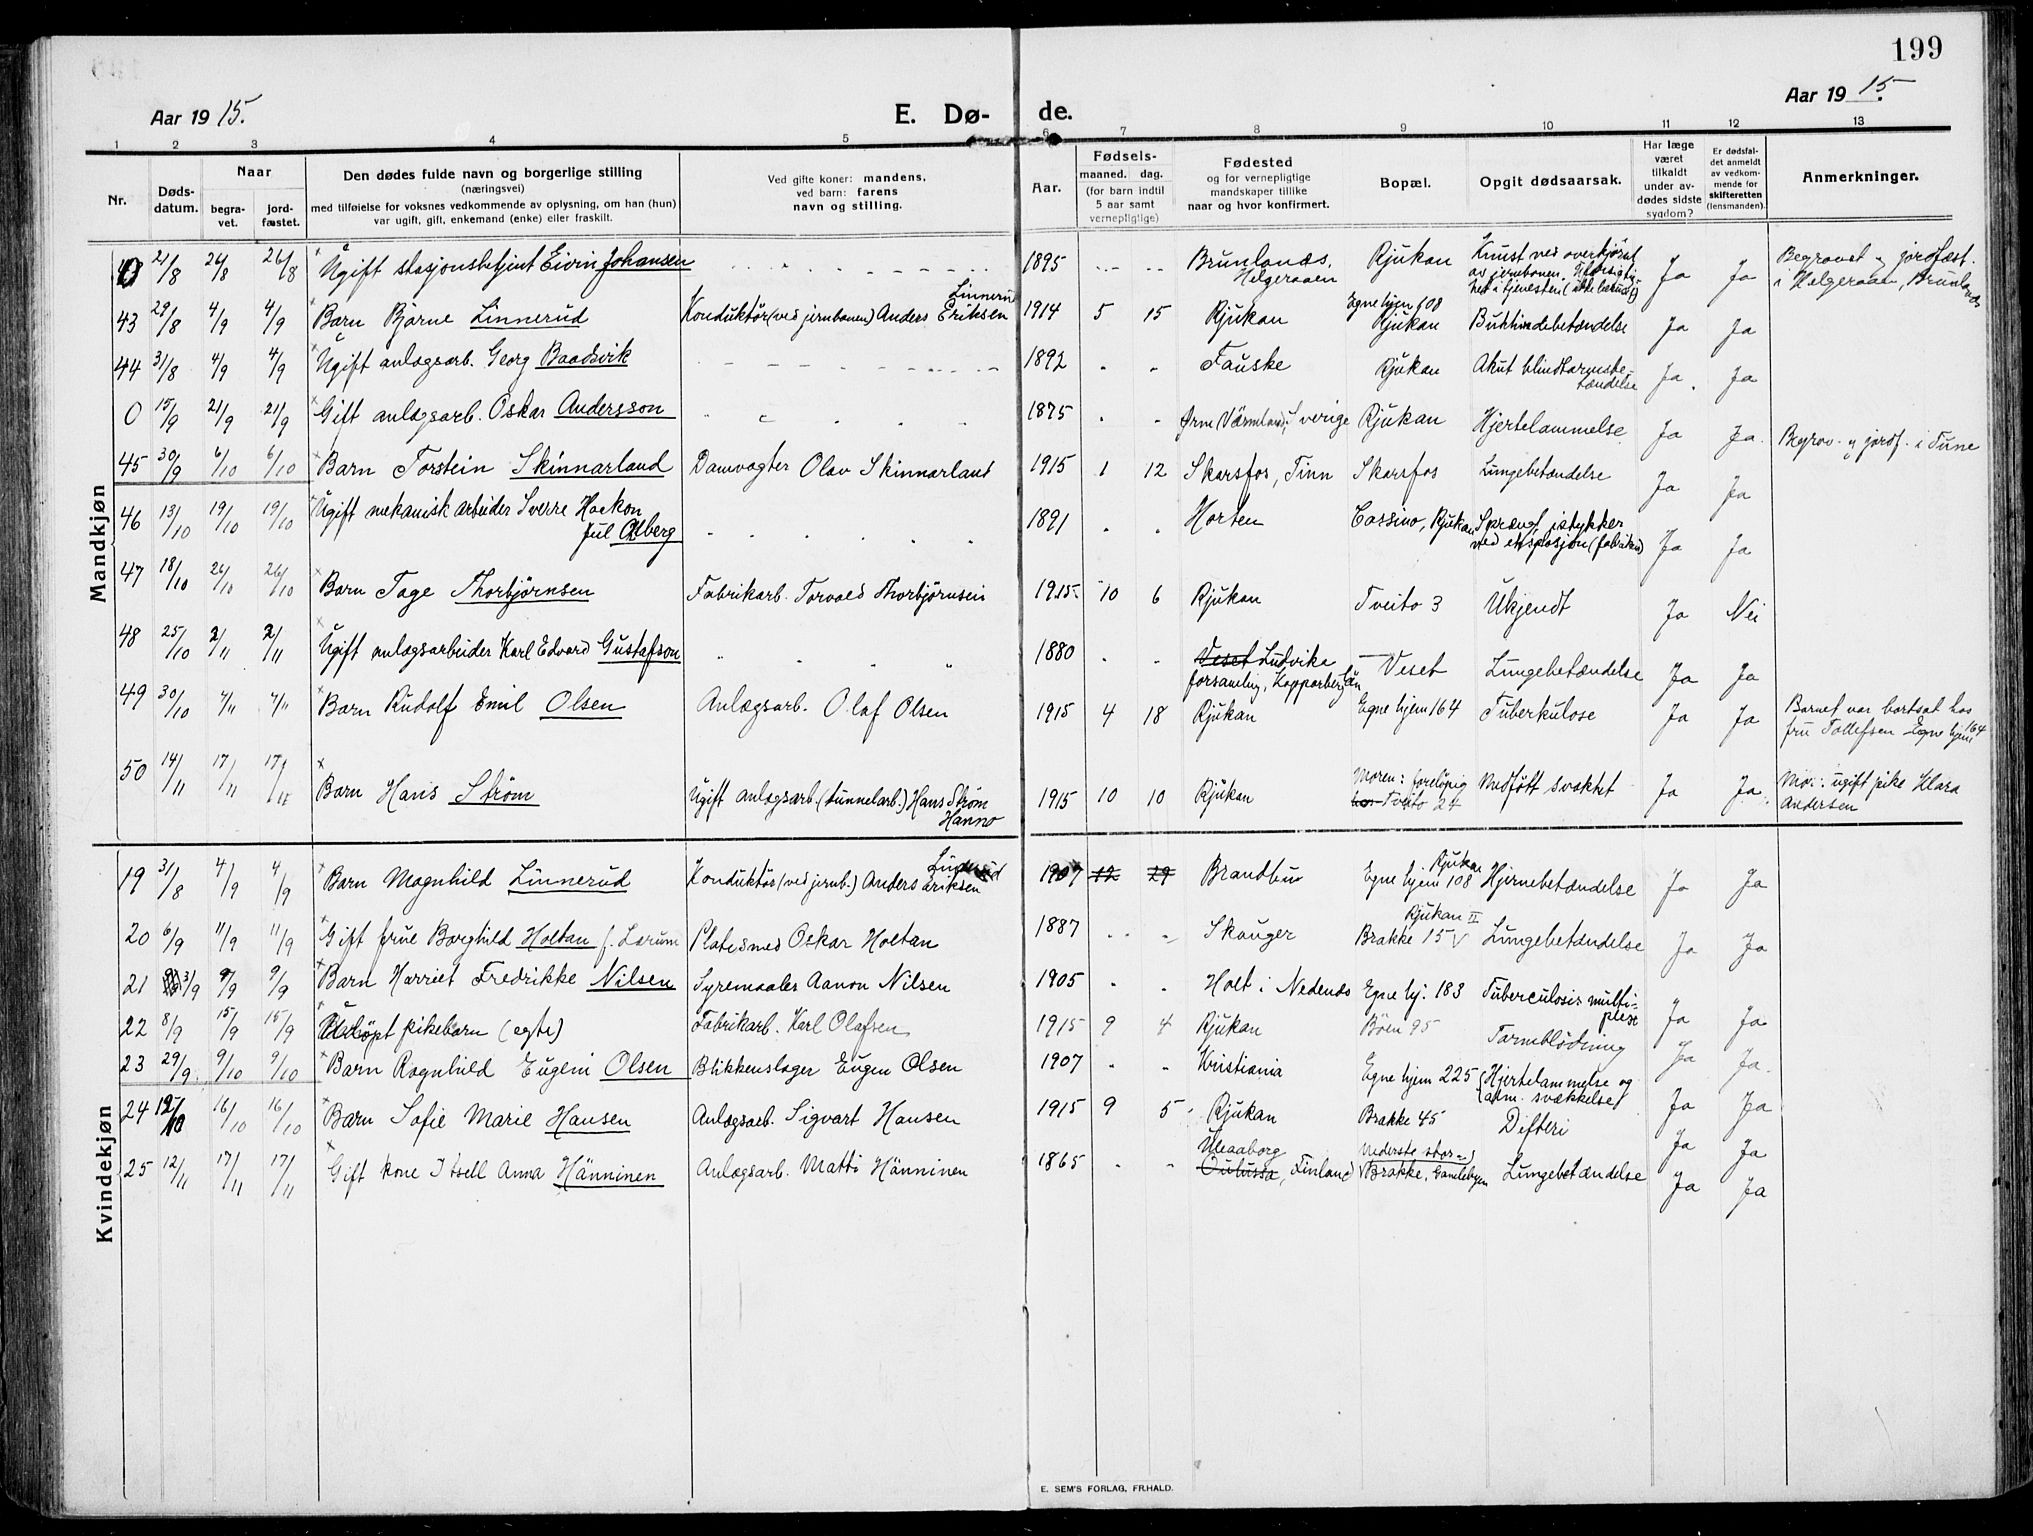 199
Aar 1915.
E. Dø- de.
Aar 1915.
1 2 3 4 5 6 7 8 9 10 11 12 13
Nr.
Døds-
datum.
Naar
begra-
vet.
jord-
fæstet.
Den dødes fulde navn og borgerlige stilling
(næringsvei)
med tilføielse for voksnes vedkommende av oplysning, om han (hun)
var ugift, gift, enkemand (enke) eller fraskilt.
Ved gifte koner: mandens,
ved barn: farens
navn og stilling.
Aar.
Fødsels-
maaned. dag.
(for barn indtil
5 aar samt
vernepligtige)
Fødested
og for vernepligtige
mandskaper tillike
naar og hvor konfirmert.
Bopæl.
Opgit dødsaarsak.
Har læge
været
tilkaldt
under av-
dødes sidste
sygdom?
Er dødsfal-
det anmeldt
av vedkom-
mende for
skifteretten
(lensmanden).
Anmerkninger.
Mandkjøn
0 21/8 26/8 26/8 Ugift stasjonsbetjent Eivin Johansen 1895 Brunlanæs, Helgeraaen Rjukan Knust ved overkjørsel
av jernbanen. Uforsigtig-
het i tjenesten (ikke beruset) Ja Ja Begravet og jordfæst.
i Helgeraaen, Brunlanæs
43 29/8 4/9 4/9 Barn Bjarne Linnerud Konduktör (ved jernbanen) Anders Eriksen Linnerud 1914 5 15 Rjukan Egne hjem 108
Rjukan Bukhindebetændelse Ja Ja
44 31/8 4/9 4/9 Ugift anlægsarb. Georg Baadsvik 1892 Fauske Rjukan Akut blindtarmsbe-
tændelse Ja Ja
0 15/9 21/9 21/9 Gift anlægsarb. Oskar Andersson 1875 Värmland, Sverige Rjukan Hjertelammelse Ja Ja Begrov. og jordf. i Tune
45 30/9 6/10 6/10 Barn Torstein Skinnarland Damvogter Olav Skinnarland 1915 1 12 Skarsfos, Tinn Skarsfos Lungebetændelse Ja Ja
46 13/10 19/10 19/10 Ugift mekanisk arbeider Sverre Haakon
Jul Alberg 1891 Horten Cassino, Rjukan Sprængt istykker
ved eksplosjon (fabriken) Ja Ja
47 18/10 26/10 26/10 Barn Tage Thorbjørnsen Fabrikarb. Torvald Thorbjørnsen 1915 10 6 Rjukan Tveito 3 Ukjendt Ja Nei
48 25/10 2/11 2/11 Ugift anlægsarbeider Karl Edvard Gustafson 1880 Veset Ludvika
forsamling, Kopparberg län Veset Lungebetændelse Ja Ja
49 30/10 4/11 4/11 Barn Rudolf Emil Olsen Anlægsarb. Olaf Olsen 1915 4 18 Rjukan Egne hjem 164 Tuberkulose Ja Ja Barnet var bortsat hos
fru Tollefsen Egne hjem 164
50 14/11 17/11 17/11 Barn Hans Strøm Ugift anlægsarb. (tunnelarb.) Hans Strøm
Hanno 1915 10 10 Rjukan Moren: foreløpig
bor Tveito 24 Medfött svakhet Ja Ja Mor: ugift pike Klara
Andersen
Kvindekjøn
19 31/8 4/9 4/9 Barn Magnhild Linnerud Konduktör (ved jernb.) Anders Eriksen Linnerud 1907 12 29 Brandbu Egne hjem 108 Rjukan Hjernebetændelse Ja Ja
20 6/9 11/9 11/9 Gift frue Borghild Holtan f. Larum Platesmed Oskar Holtan 1887 Skouger Rjukan II
Brakke 15 V Lungebetændelse Ja Ja
21 3/9 9/9 9/9 Barn Harriet Fredrikke Nilsen Syremaaler Aanon Nilsen 1905 Holt i Nedenæs Egne hj. 183 Tuberculosis multi-
plese Ja Ja
22 8/9 15/9 15/9 Udöpt pikebarn (egte) Fabrikarb. Karl Olafsen 1915 9 4 Rjukan Böen 95 Tarmblödning Ja Ja
23 29/9 9/10 9/10 Barn Ragnhild Eugeni Olsen Blikkenslager Eugen Olsen 1907 Kristiania Egne hjem 225 Hjertelammelse og
alm. svækkelse Ja Ja
24 12/10 16/10 16/10 Barn Sofie Marie Hansen Anlægsarb. Sigvart Hansen 1915 9 5 Rjukan Brakke 45 Difteri Ja Ja
25 12/11 17/11 17/11 Gift kone Itsell Anna Hänninen Anlægsarb. Matti Hänninen 1865 Uleaaborg
Oulussa, Finland Nederste stor-
Brakke, Gamlebyen Lungebetændelse Ja Ja
E. SEM'S FORLAG, FR.HALD.